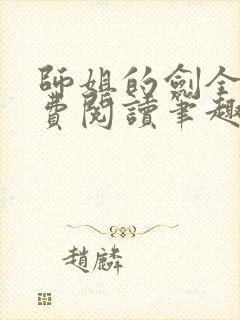 師姐的劍全
費閱讀筆趣
趙麟